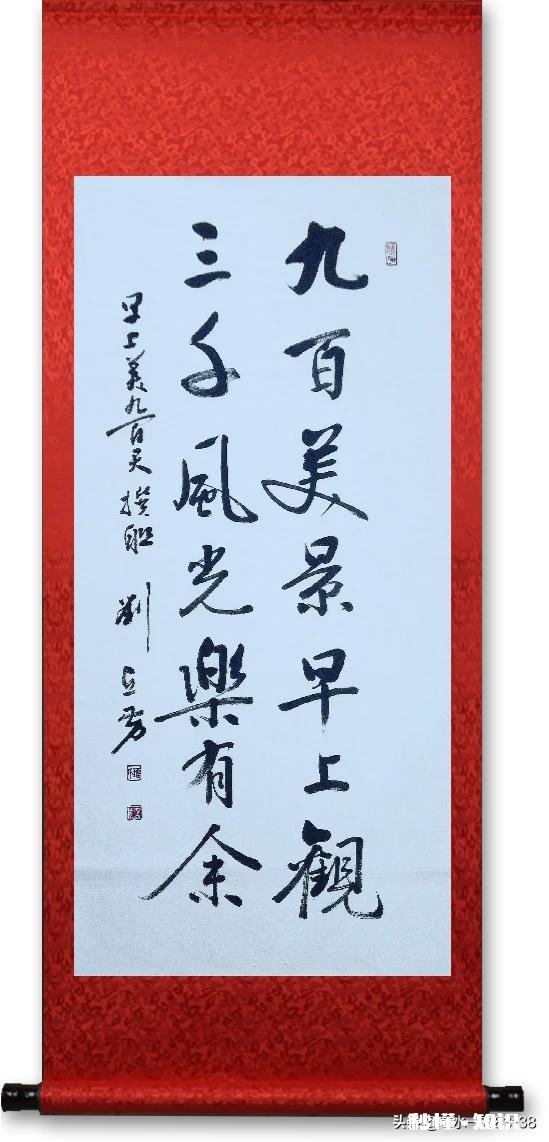 九百美景早上觀
三千風光樂有余
早上美九百天撰联 劉
秒懂·知识